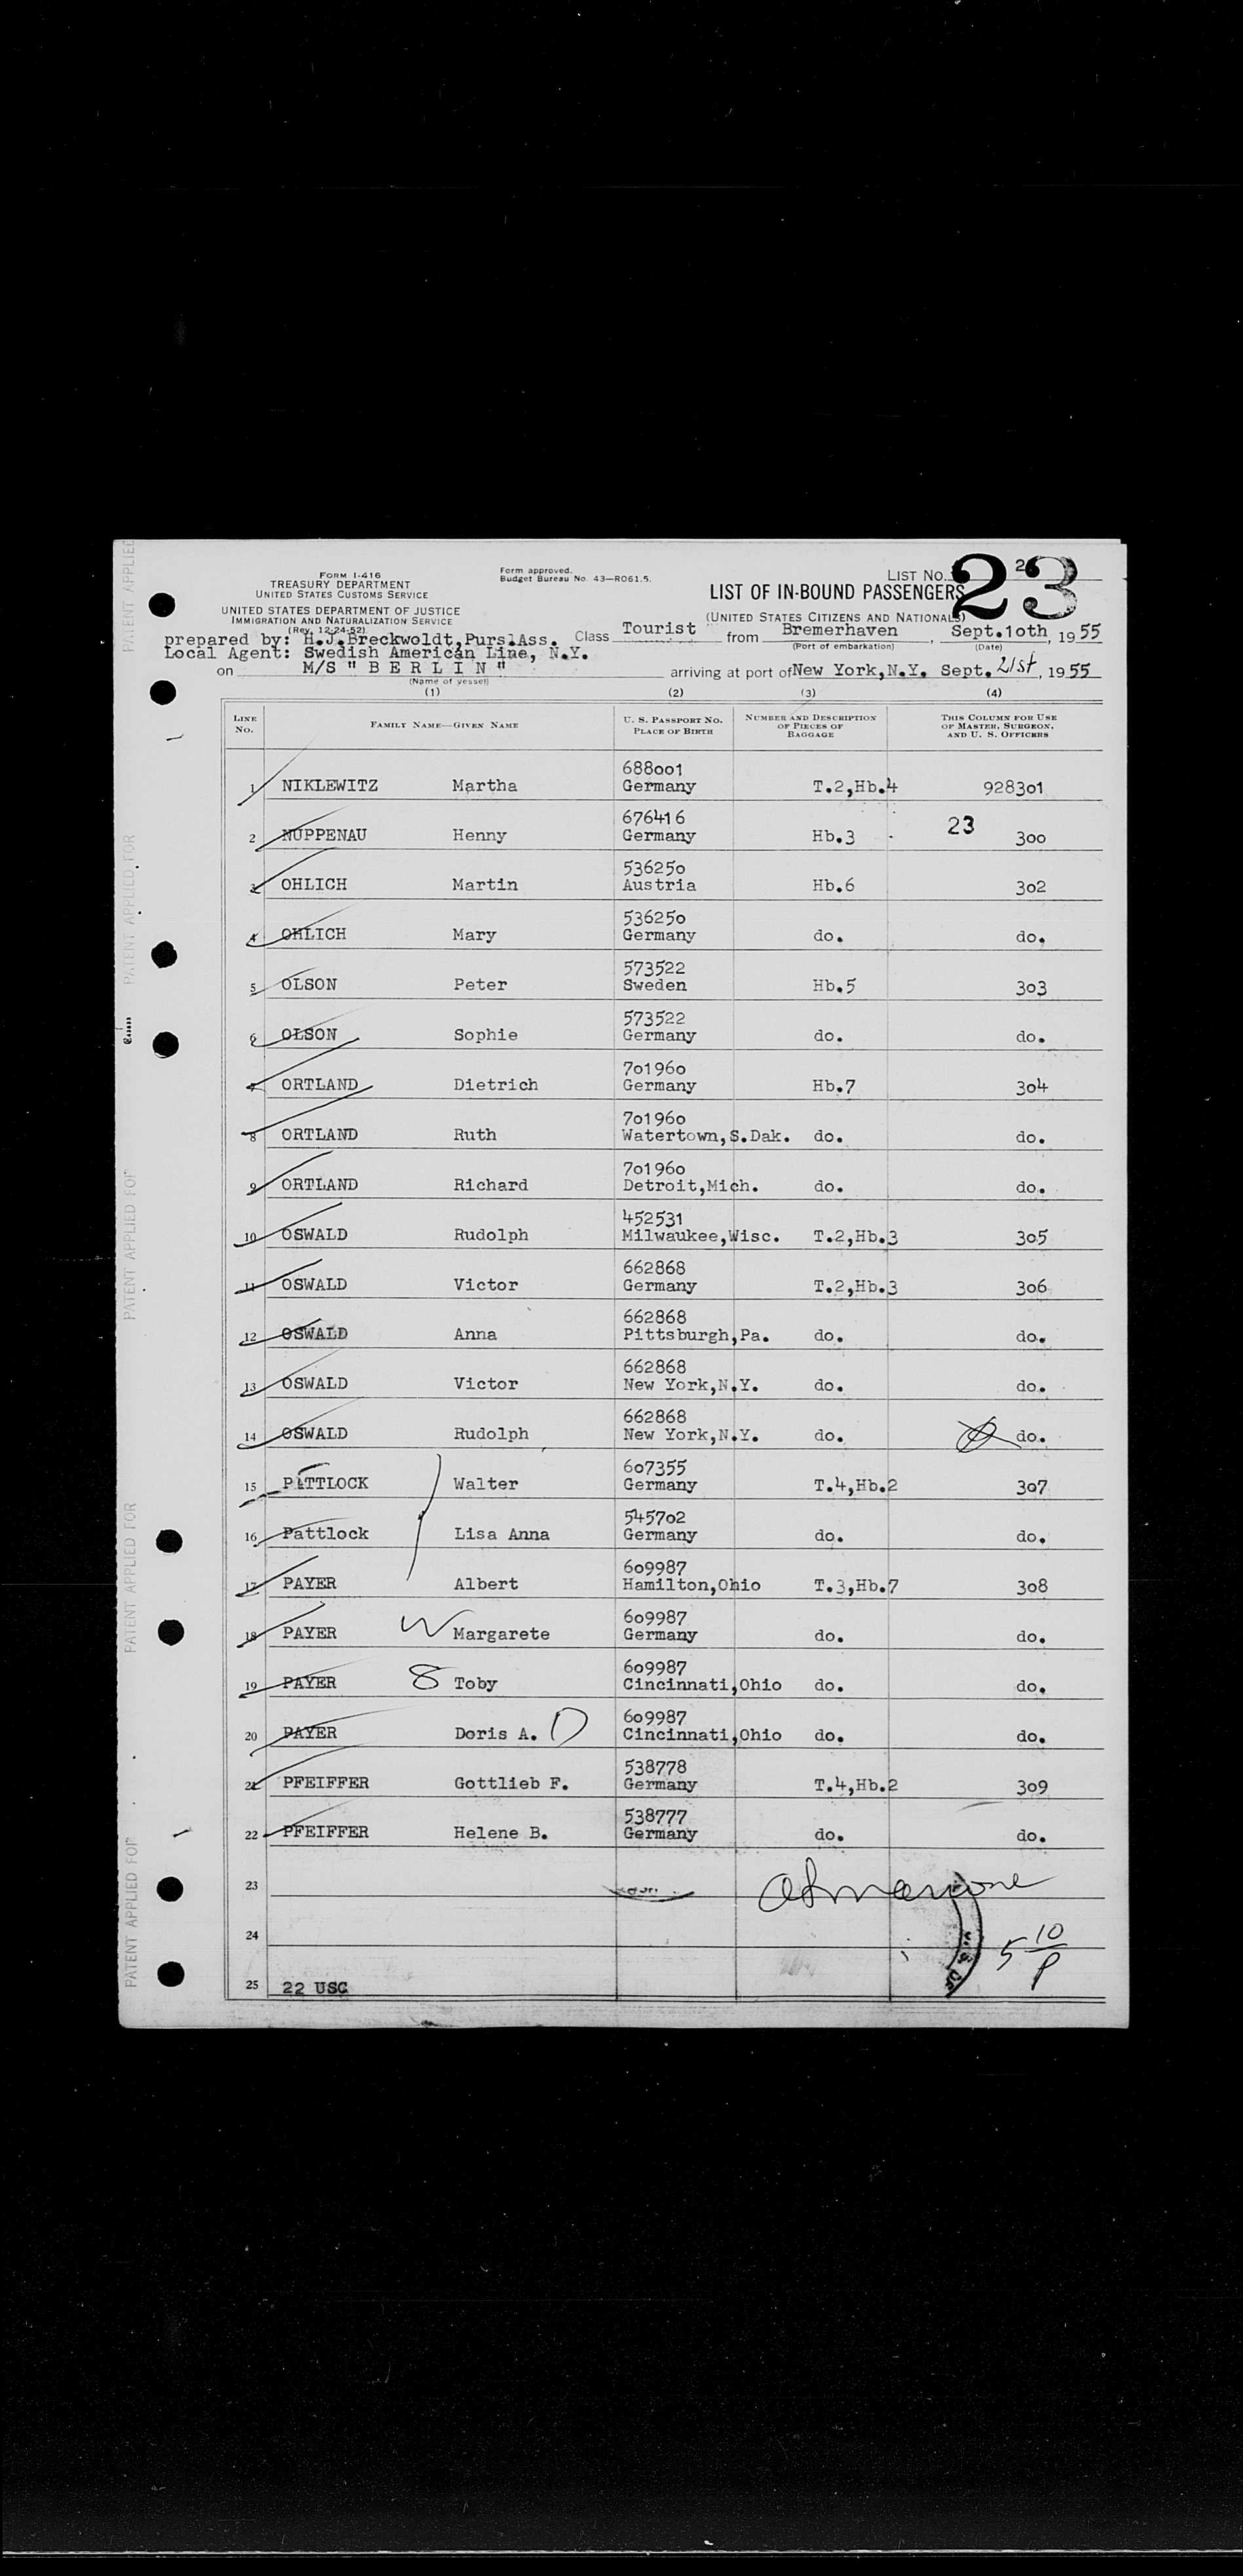 FORM I-416
TREASURY DEPARTMENT
UNITED STATES CUSTOMS SERVICE
UNITED STATES DEPARTMENT OF JUSTICE
IMMIGRATION AND NATURALIZATION SERVICE
(Rev. 12-24-52)
Form approved.
Budget Bureau No. 43—R061.5.
LIST No. 2
23
LIST OF IN-BOUND PASSENGERS
(UNITED STATES CITIZENS AND NATIONALS)
prepared by: H.J.Breckwoldt,Purs.Ass. Class Tourist from Bremerhaven, Sept.1oth, 1955
(Port of embarkation) (Date)
Local Agent: Swedish American Line, N.Y.
on M/S " B E R L I N " arriving at port of New York,N.Y. Sept. 21st, 1955
(Name of vessel)
(1) (2) (3) (4)
LINE No. FAMILY NAME—GIVEN NAME U. S. PASSPORT NO. PLACE OF BIRTH NUMBER AND DESCRIPTION OF PIECES OF BAGGAGE THIS COLUMN FOR USE OF MASTER, SURGEON, AND U. S. OFFICERS
688oo1
1 NIKLEWITZ Martha Germany T.2,Hb.4 9283o1
676416
2 NUPPENAU Henny Germany Hb.3 23 3oo
53625o
3 OHLICH Martin Austria Hb.6 3o2
53625o
4 OHLICH Mary Germany do. do.
573522
5 OLSON Peter Sweden Hb.5 3o3
573522
6 OLSON Sophie Germany do. do.
7o196o
7 ORTLAND Dietrich Germany Hb.7 3o4
7o196o
8 ORTLAND Ruth Watertown,S.Dak. do. do.
7o196o
9 ORTLAND Richard Detroit,Mich. do. do.
452531
10 OSWALD Rudolph Milwaukee,Wisc. T.2,Hb.3 3o5
662868
11 OSWALD Victor Germany T.2,Hb.3 3o6
662868
12 OSWALD Anna Pittsburgh,Pa. do. do.
662868
13 OSWALD Victor New York,N.Y. do. do.
662868
14 OSWALD Rudolph New York,N.Y. do. do.
6o7355
15 PATTLOCK Walter Germany T.4,Hb.2 3o7
5457o2
16 Pattlock Lisa Anna Germany do. do.
6o9987
17 PAYER Albert Hamilton,Ohio T.3,Hb.7 3o8
6o9987
18 PAYER W Margarete Germany do. do.
6o9987
19 PAYER 8 Toby Cincinnati,Ohio do. do.
6o9987
20 PAYER Doris A. D Cincinnati,Ohio do. do.
538778
21 PFEIFFER Gottlieb F. Germany T.4,Hb.2 3o9
538777
22 PFEIFFER Helene B. Germany do. do.
23
24 5 10/P
25 22 USC
PATENT APPLIED FOR
PATENT APPLIED FOR
PATENT APPLIED FOR
PATENT APPLIED FOR
PATENT APPLIED